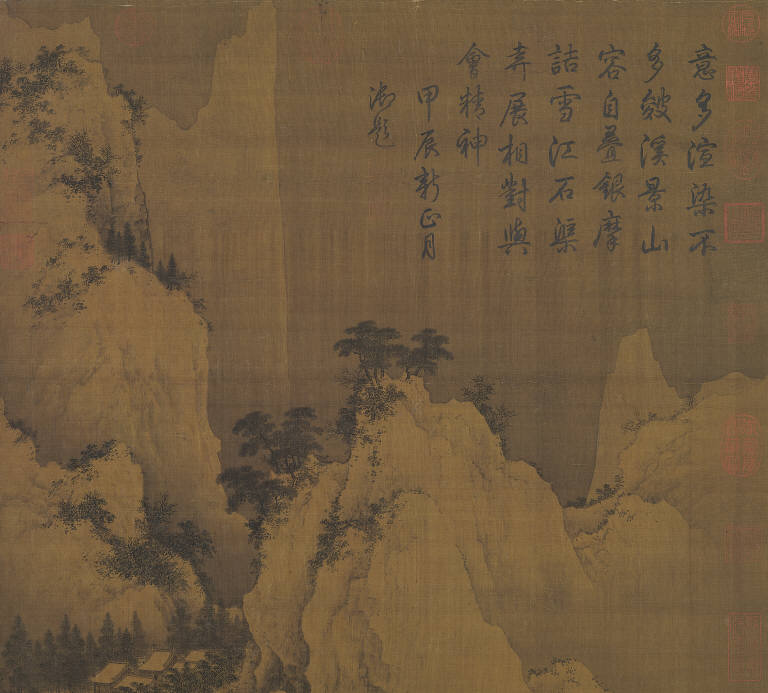 意多渲染不
多皴溪景山
容自疊銀摩
詰雪江石渠
弆展相對與
會精神
甲辰新正月
御題